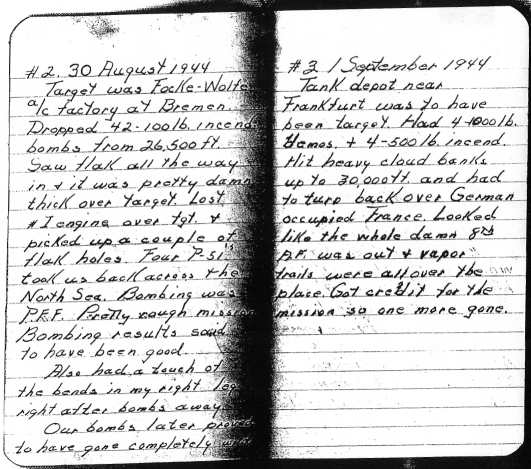 #2. 30 August 1944
Target was Focke-Wolfe
a/c factory at Bremen.
Dropped 42-100lb. incend.
bombs from 26,500 ft.
Saw flak all the way
in + it was pretty damn
thick over target. Lost
#1 engine over tgt. +
picked up a couple of
flak holes. Four P-51's
took us back across the
North Sea. Bombing was
P.F.F. Pretty rough mission
Bombing results said
to have been good.
Also had a touch of
the bends in my right leg
right after bombs away.
Our bombs later proved
to have gone completely
#3 1 September 1944
Tank depot near
Frankfurt was to have
been target. Had 4-1000lb.
demos. + 4-500lb. incend.
Hit heavy cloud banks
up to 30,000ft. and had
to turn back over German
occupied France. Looked
like the whole damn 8th
A.F. was out + vapor
trails were all over the
place. Got credit for the
mission so one more gone.